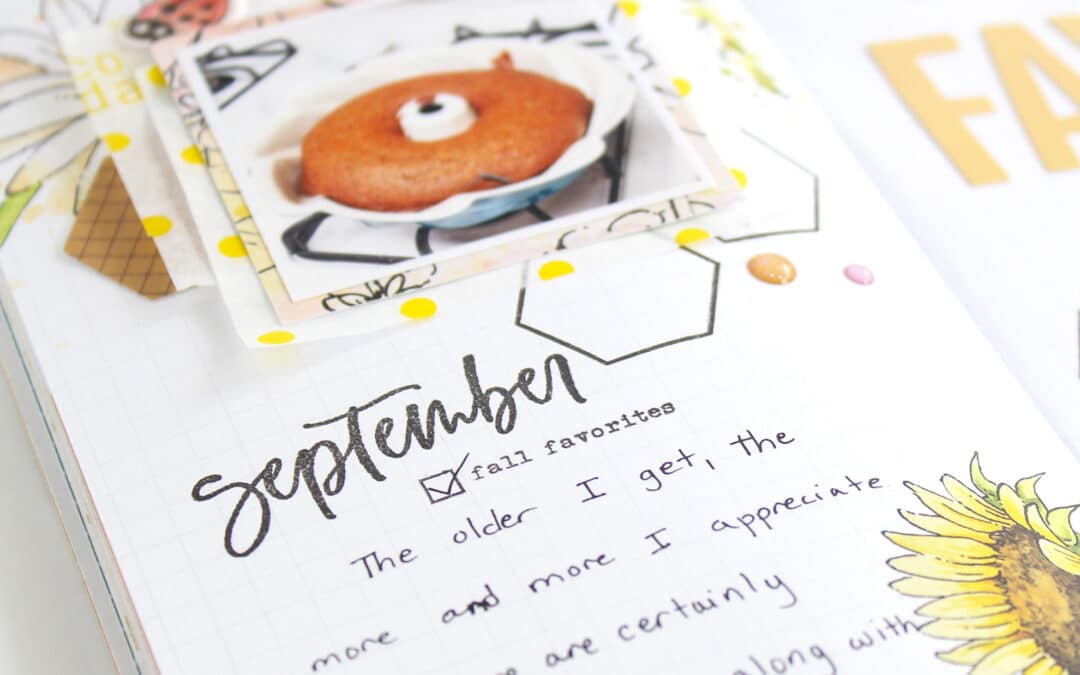 FA
september
fall favorites
The older I get, the
more and more I appreciate
are certainly
along with